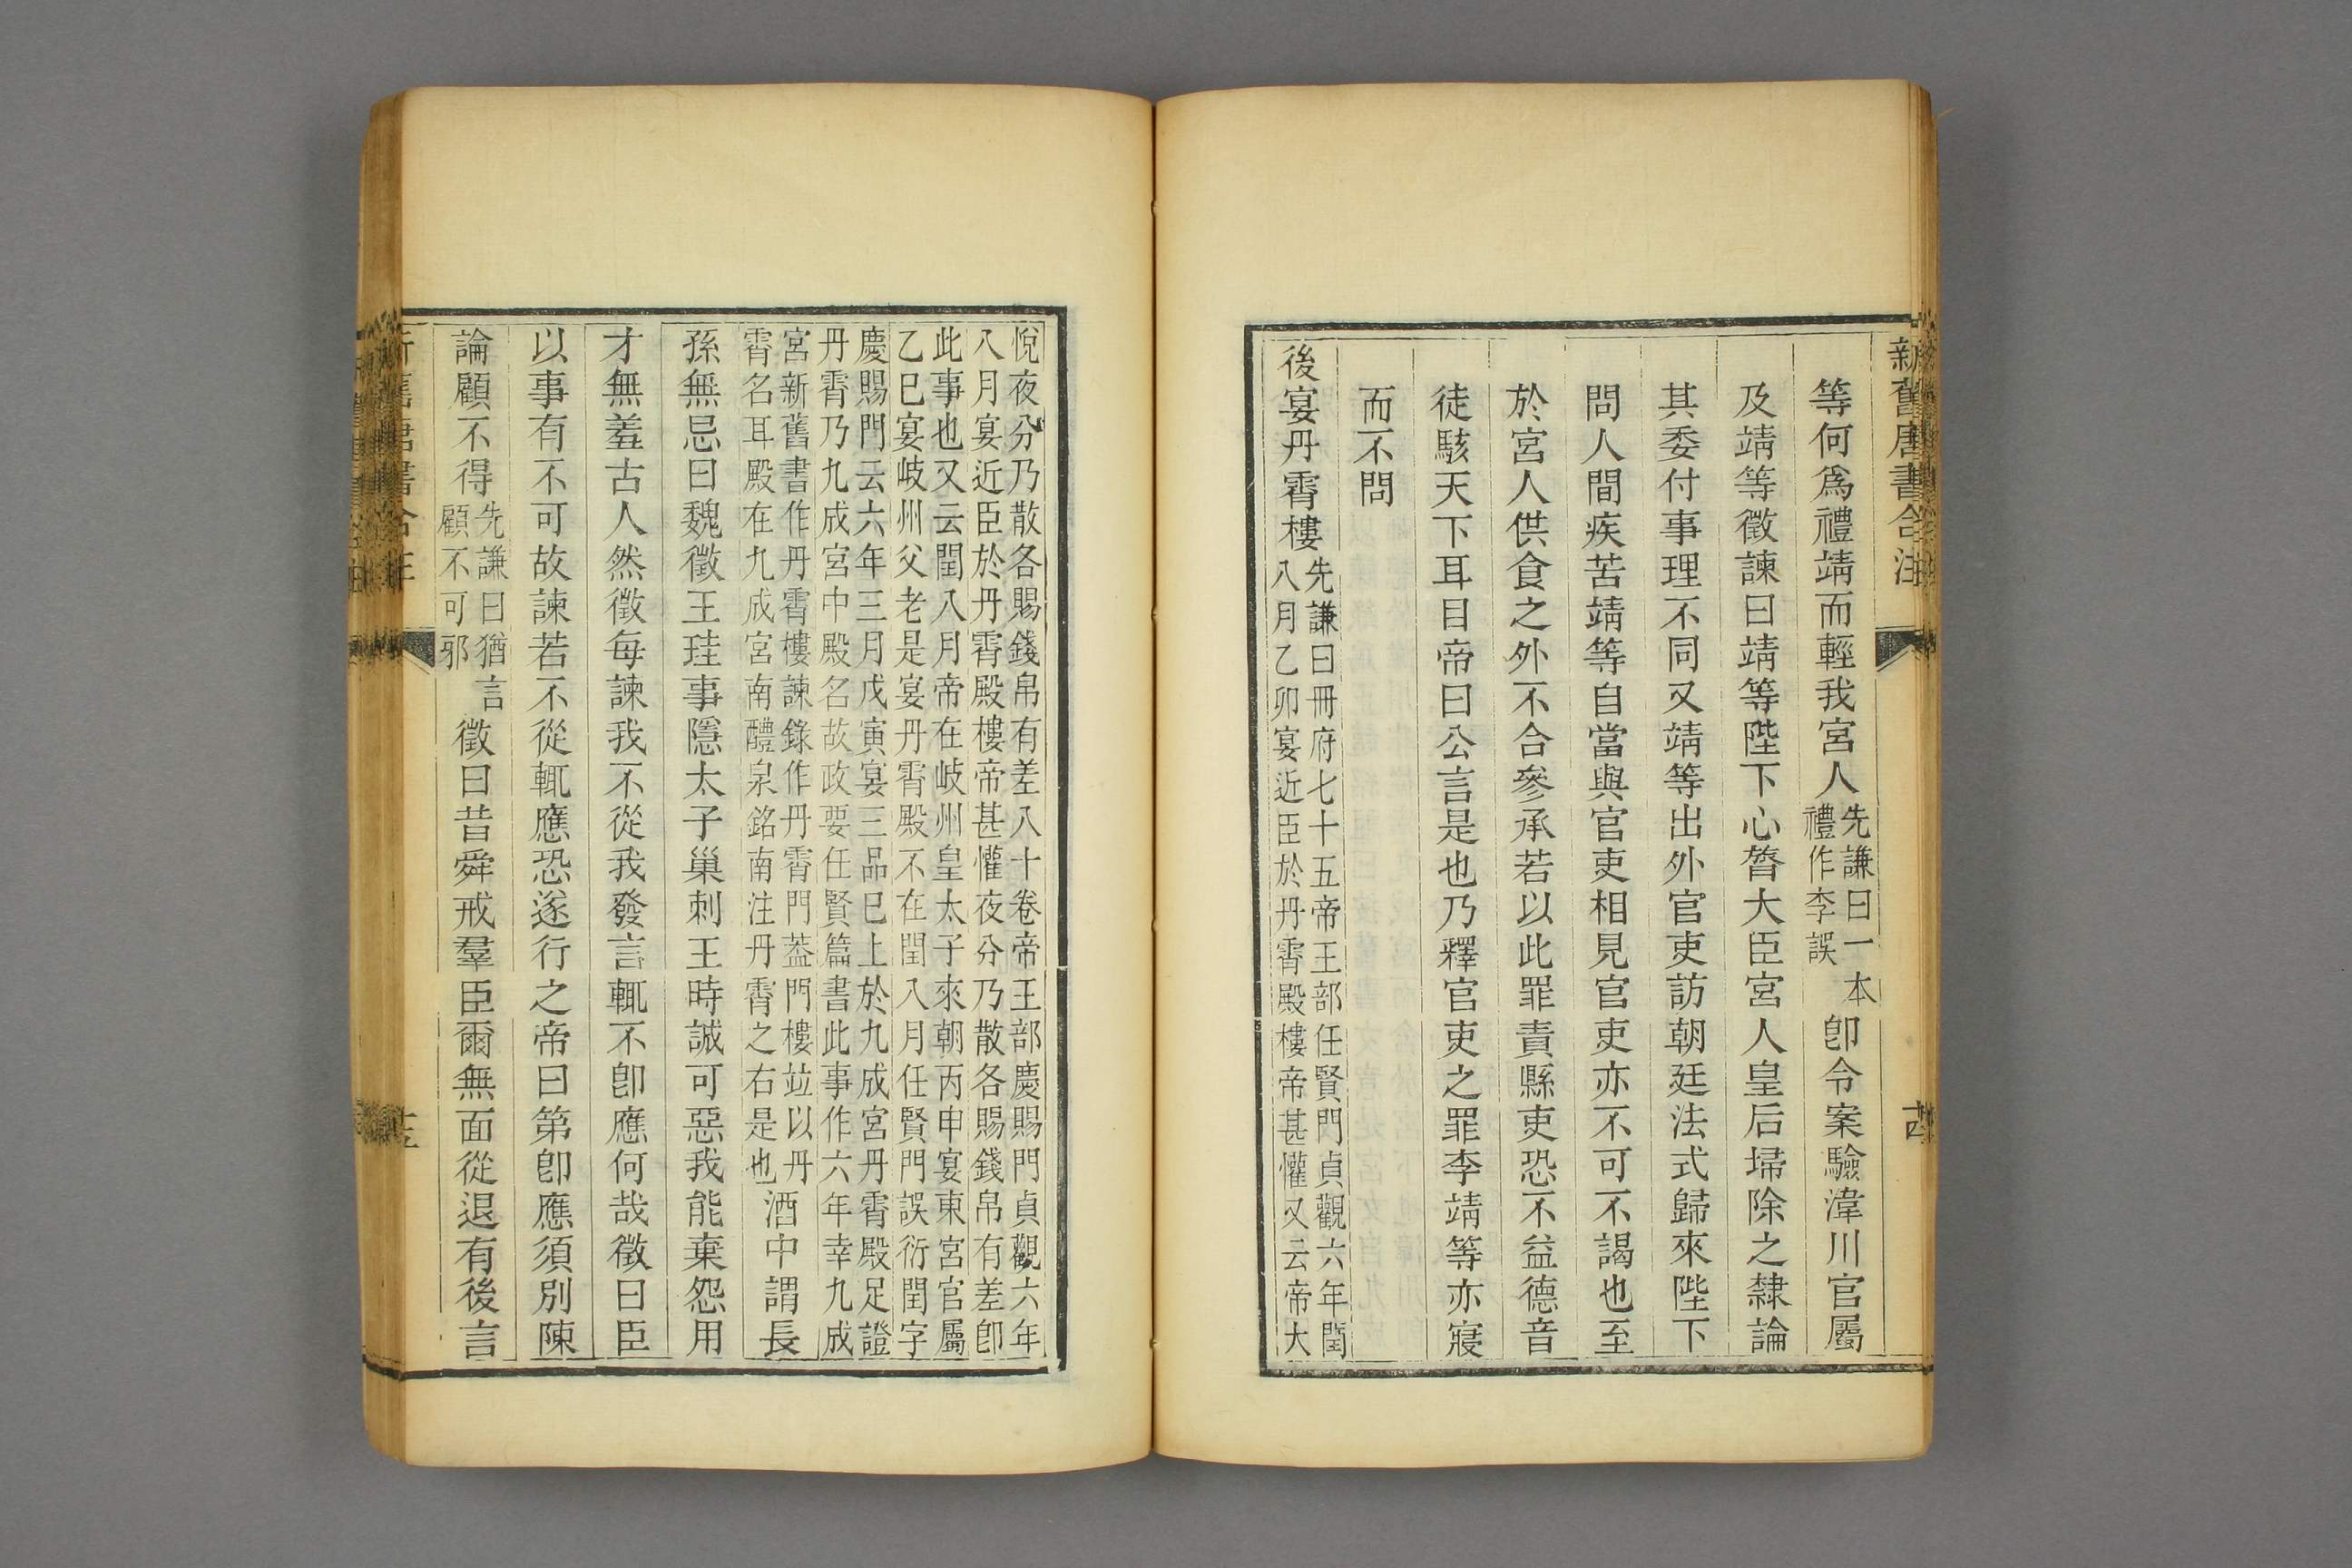 新舊唐書合注
等何爲禮靖而輕我宮人
先謙曰一本
禮作李誤
卽令案驗湋川官屬
及靖等徵諫曰靖等陛下心膂大臣宮人皇后埽除之隸論
其委付事理不同又靖等出外官吏訪朝廷法式歸來陛下
問人間疾苦靖等自當與官吏相見官吏亦不可不謁也至
於宮人供食之外不合參承若以此罪責縣吏恐不益德音
徒駭天下耳目帝曰公言是也乃釋官吏之罪李靖等亦寢
而不問
後宴丹霄樓
先謙曰冊府七十五帝王部任賢門貞觀六年閏
八月乙卯宴近臣於丹霄殿樓帝甚懽又云帝大
十四
悅夜分乃散各賜錢帛有差八十卷帝王部慶賜門貞觀六年
八月宴近臣於丹霄殿樓帝甚懽夜分乃散各賜錢帛有差卽
此事也又云閏八月帝在岐州皇太子來朝丙申宴東宮官屬
乙巳宴岐州父老是宴丹霄殿不在閏八月任賢門誤衍閏字
慶賜門云六年三月戊寅宴三品已上於九成宮丹霄殿足證
丹霄乃九成宮中殿名故政要任賢篇書此事作六年幸九成
宮新舊書作丹霄樓諫錄作丹霄門蓋門樓竝以丹
霄名耳殿在九成宮南醴泉銘南注丹霄之右是也
酒中謂長
孫無忌曰魏徵王珪事隱太子巢刺王時誠可惡我能棄怨用
才無羞古人然徵每諫我不從我發言輒不卽應何哉徵曰臣
以事有不可故諫若不從輒應恐遂行之帝曰第卽應須別陳
論顧不得
先謙曰猶言
顧不可邪
徵曰昔舜戒羣臣爾無面從退有後言
新舊唐書合注